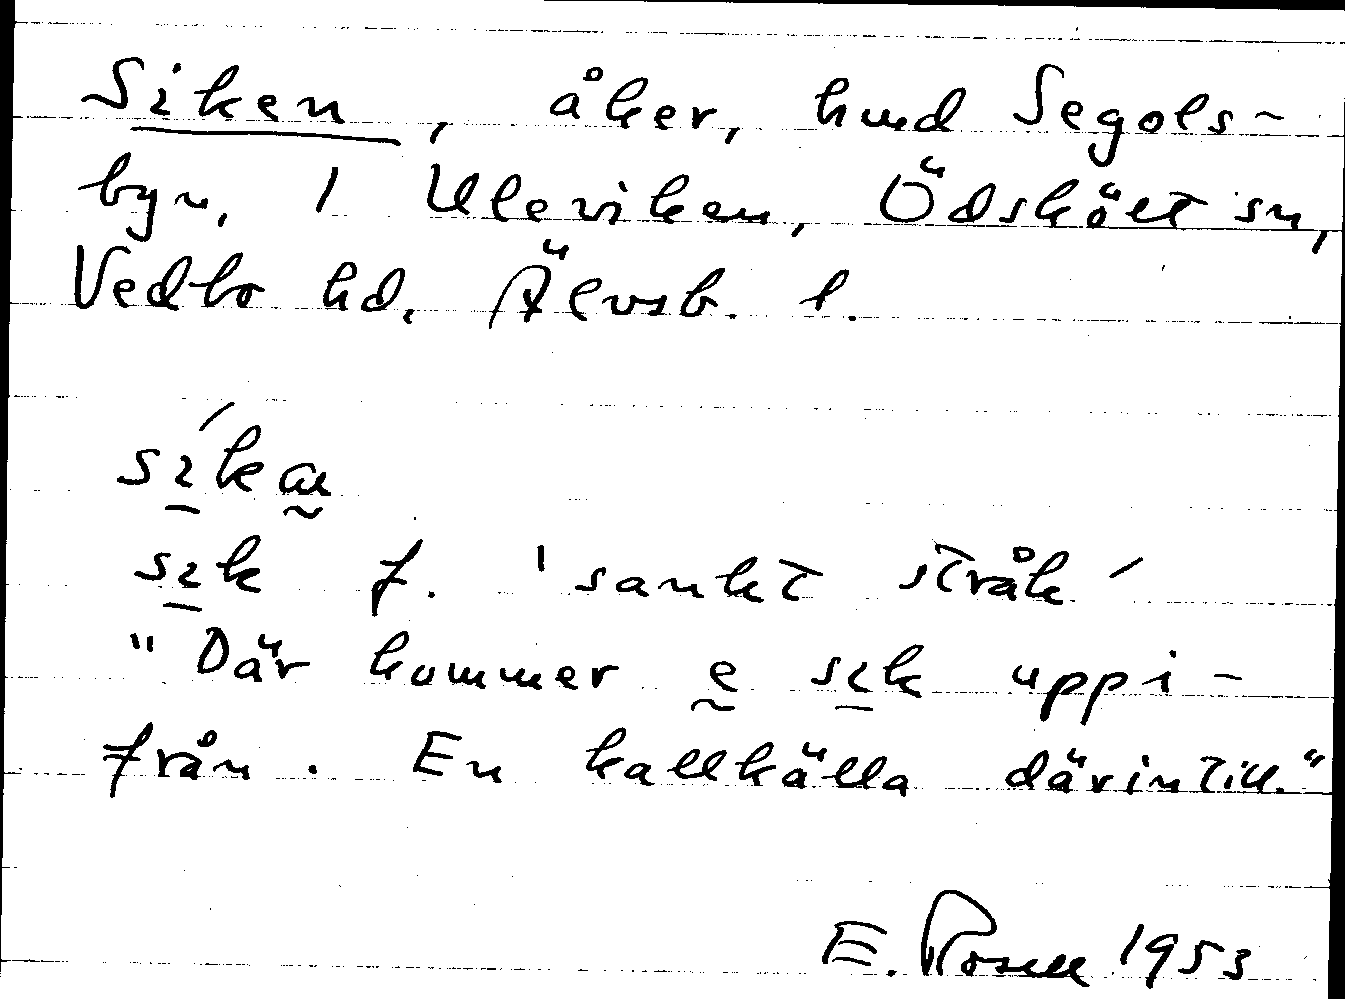 Siken, åker, hmd Segols-
byn, 1 Uleviken, Ödskölt sn,
Vedbo hd. Älvsb. l.
síka
sik f. 'sankt stråk'
"Där kommer e sik uppi-
från. En kallkälla därintill."
E. Rosell 1953